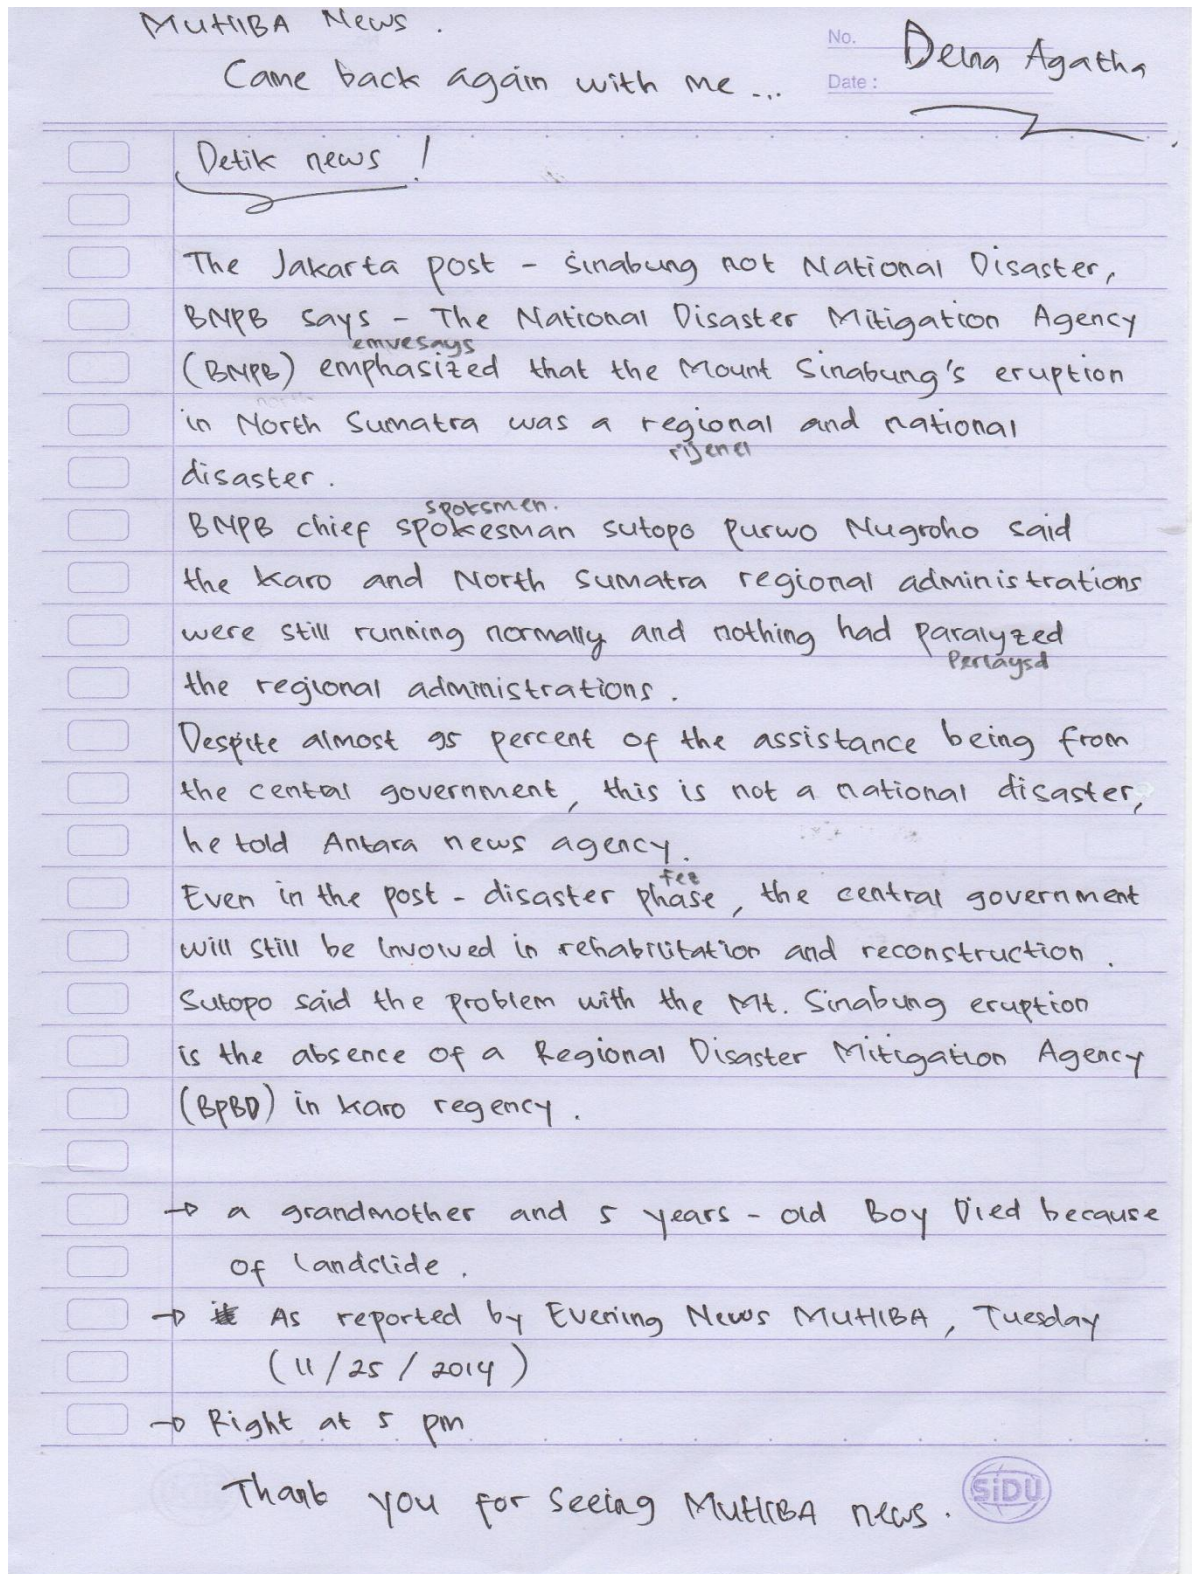 MUHIBA News.
No.
Delna Agatha
Came back again with me ...
Date :
Detik news !
The Jakarta post - Sinabung not National Disaster,
BNPB says - The National Disaster Mitigation Agency
emvesays
(BNPB) emphasized that the Mount Sinabung's eruption
in North Sumatra was a regional and national
rijenel
disaster.
spoksmen.
BNPB chief spokesman sutopo purwo Nugroho said
the Karo and North Sumatra regional administrations
were still running normally and nothing had paralyzed
Perlaysd
the regional administrations.
Despite almost 95 percent of the assistance being from
the central government, this is not a national disaster,
he told Antara news agency.
fez
Even in the post - disaster phase, the central government
will still be involved in rehabilitation and reconstruction.
Sutopo said the problem with the Mt. Sinabung eruption
is the absence of a Regional Disaster Mitigation Agency
(BPBD) in Karo regency.
→ a grandmother and 5 years - old Boy Died because
of landslide.
→ As reported by Evening News MUHIBA, Tuesday
(11/25/2014)
→ Right at 5 pm
Thank you for seeing MUHIBA news.
SiDU